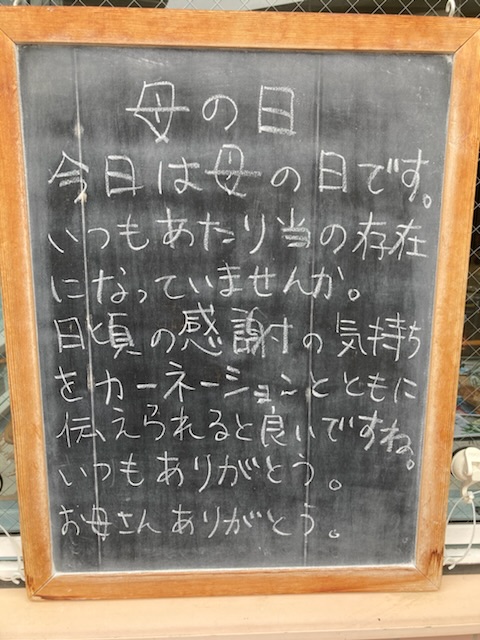 母の日
今日は母の日です。
いつもあたり当の存在
になっていませんか。
日頃の感謝の気持ち
をカーネーションとともに
伝えられると良いですね。
いつもありがとう。
お母さんありがとう。